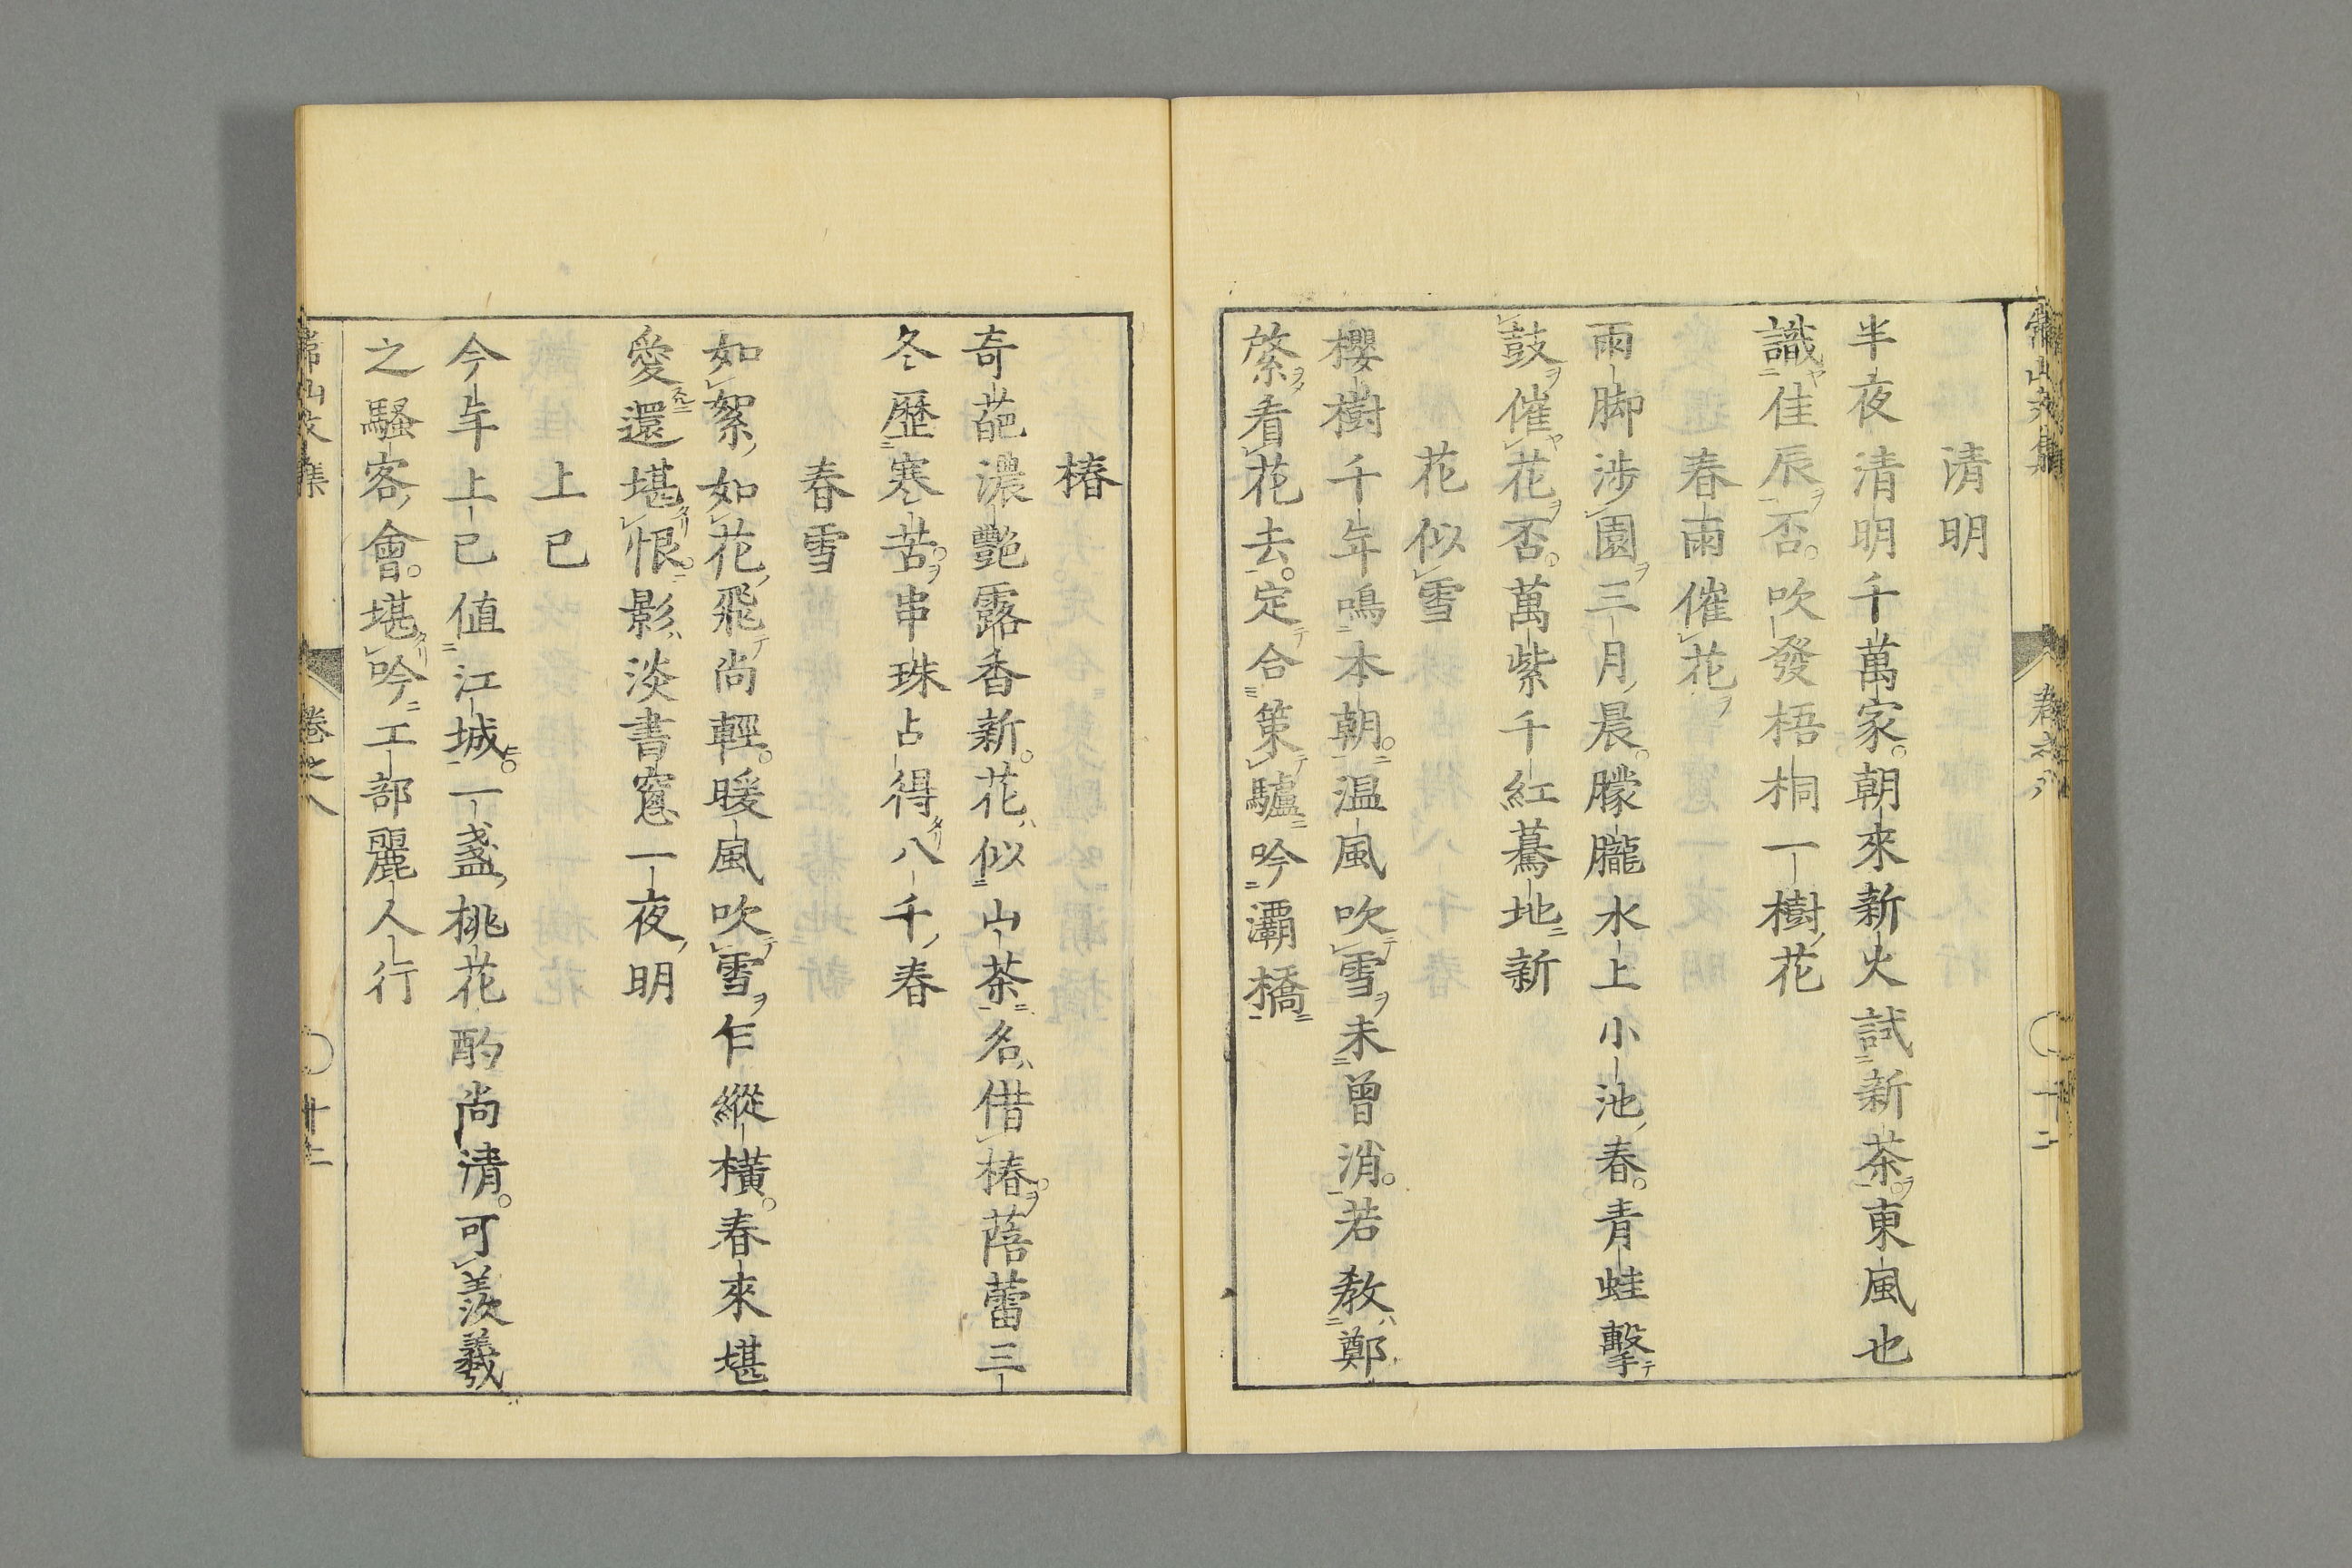 清明
半夜清明千萬家。朝來新火試新茶。東風也
識佳辰否。吹發梧桐一樹花
春雨催花
雨脚渉園三月晨。朦朧水上小池春。青蛙擊
鼓催花否。萬紫千紅驀地新
花似雪
櫻樹千年鳴本朝。温風吹雪未曾消。若教鄭
綮看花去。定合策驢吟灞橋
椿
奇葩濃艷露香新。花似山茶名借椿。蓓蕾三
冬歷寒苦。串珠占得八千春
春雪
如絮如花飛尚輕。暖風吹雪乍縱橫。春來堪
愛還堪恨。影淡書窓一夜明
上巳
今年上巳值江城。一盞桃花酌尚清。可羨羲
之騷客會。堪吟工部麗人行
卷之八